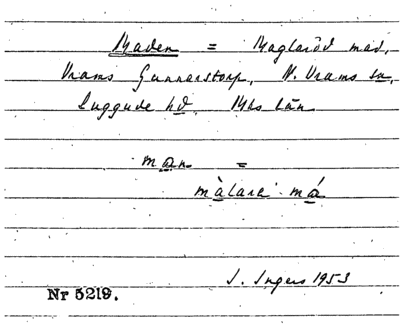 Maden = Maglaröd mad,
Vrams Gunnarstorp, N. Vrams sn,
Luggude hd. Mhs län
man =
màlara må
I. Ingers 1953
Nr 5219.